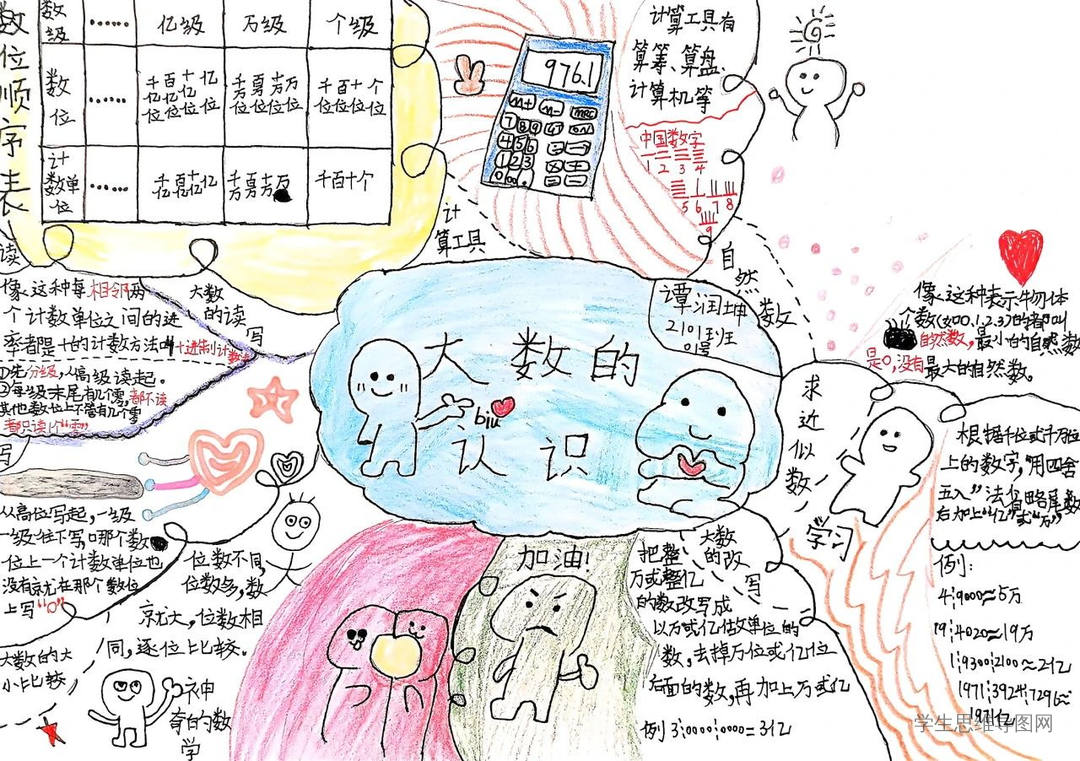 数位顺序表
数级 …… 亿级 万级 个级
数位 …… 千亿位 百亿位 十亿位 亿位 千万位 百万位 十万位 万位 千位 百位 十位 个位
计数单位 …… 千亿 百亿 十亿 亿 千万 百万 十万 万 千 百 十 个
976.1
计算工具
计算工具有
算筹、算盘、
计算机等
中国数字
1 2 3 4
5 6 7 8
9
大数的
认识
谭润坤
biu
自然数
像这种表示物体
个数(如0.1.2.3)的都叫
自然数,最小的自然数
是0,没有最大的自然数。
求近似数
根据千位或千万位
上的数字,用四舍
五入”法省略尾数
右加上“亿”或“万”
例:
4┆9000≈5万
19┆4020≈19万
1┆9300┆2100≈2亿
学习
大数的改写
把整
万或整亿
的数改写成
以万或亿做单位的
数,去掉万位或亿位
后面的数,再加上万或亿
例 3┆0000┆0000=3亿
加油!
大数的读写
读
像这种每相邻两
个计数单位之间的进
率都是十的计数方法叫十进制计数法
①先分级,从高级读起。
②每级末尾有几个零,都不读
其他数位上不管有几个零
都只读1个“零”
写
从高位写起,一级
一级往下写,哪个数
位上一个计数单位也
没有就在那个数位
上写“0”
大数的大
小比较
位数不同,
位数多,数
就大,位数相
同,逐位比较。
神奇的数学
学生思维导图网